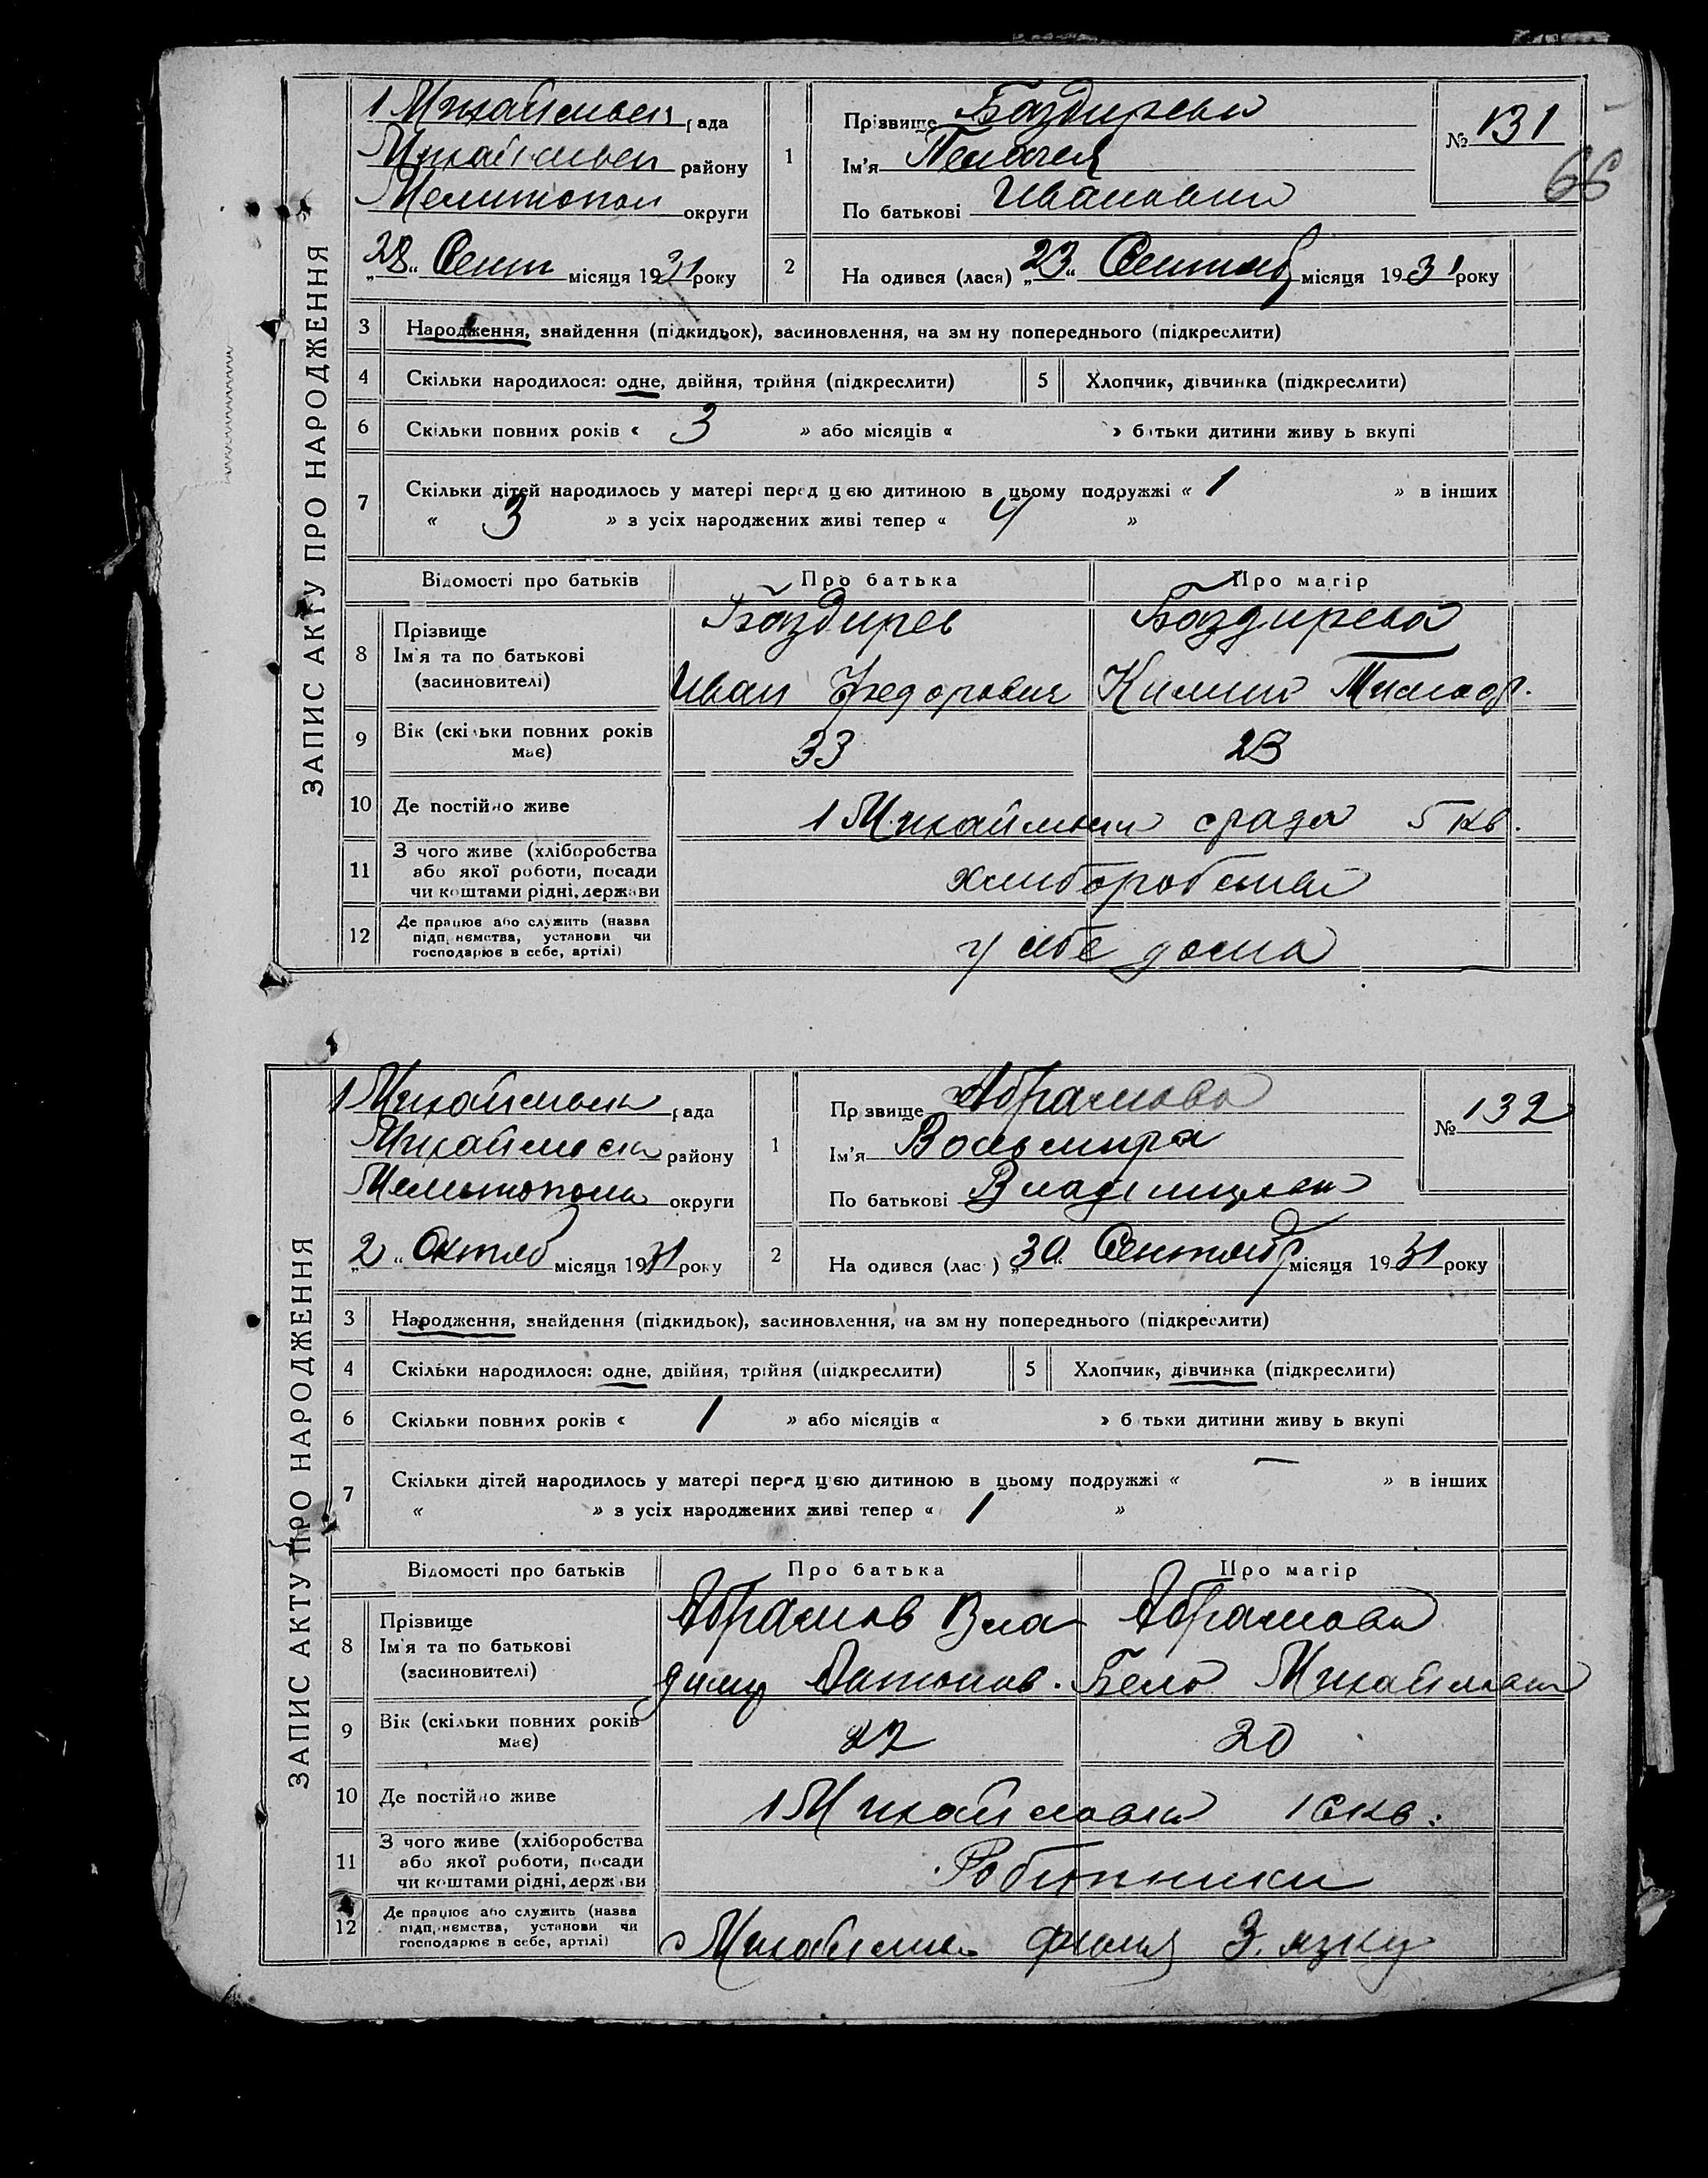 ЗАПИС АКТУ ПРО НАРОДЖЕННЯ
1 Михайловск рада
Михайловск району
Мелитопол округи
„28“ Сент місяця 1931 року
1 Прізвище Баздирева
Ім'я Пелагея
По батькові Ивановна
№ 131
66
2 На одився (лася) „23“ Сентяб місяця 1931 року
3 Народження, знайдення (підкидьок), засиновлення, на зм ну попереднього (підкреслити)
4 Скільки народилося: одне, двійня, трійня (підкреслити) 5 Хлопчик, дівчинка (підкреслити)
6 Скільки повних років « 3 » або місяців « » б тьки дитини живу ь вкупі
7 Скільки дітей народилось у матері перед цією дитиною в цьому подружжі « 1 » в інших
« 3 » з усіх народжених живі тепер « 4 »
Відомості про батьків Про батька Про матір
8 Прізвище Баздирев Баздирева
Ім'я та по батькові
(засиновителі) Иван Федорович
9 Вік (скільки повних років має) 33 23
10 Де постійно живе 1 Михайловка срада 5 кв.
11 З чого живе (хліборобства
або якої роботи, посади
чи коштами рідні, держави хлиборобства
12 Де працює або служить (назва
підп. ємства, установи чи
господарює в себе, артілі) у себе дома
ЗАПИС АКТУ ПРО НАРОДЖЕННЯ
1 Михайловск рада
Михайловск району
Мелитополь округи
„2“ Октяб місяця 1931 року
1 Пр звище Абрамова
Ім'я
По батькові
№ 132
2 На одився (лас ) „30“ Сентябр місяця 1931 року
3 Народження, знайдення (підкидьок), засиновлення, на зм ну попереднього (підкреслити)
4 Скільки народилося: одне, двійня, трійня (підкреслити) 5 Хлопчик, дівчинка (підкреслити)
6 Скільки повних років « 1 » або місяців « » б тьки дитини живу ь вкупі
7 Скільки дітей народилось у матері перед цією дитиною в цьому подружжі « — » в інших
« » з усіх народжених живі тепер « 1 »
Відомості про батьків Про батька Про матір
8 Прізвище Абрамов Вла Абрамова
Ім'я та по батькові
(засиновителі) димр Антонов. Бела Михайловна
9 Вік (скільки повних років має) 22 20
10 Де постійно живе 1 Михайловка
11 З чого живе (хліборобства
або якої роботи, посади
чи коштами рідні, держави Робитники
12 Де працює або служить (назва
підп. ємства, установи чи
господарює в себе, артілі)